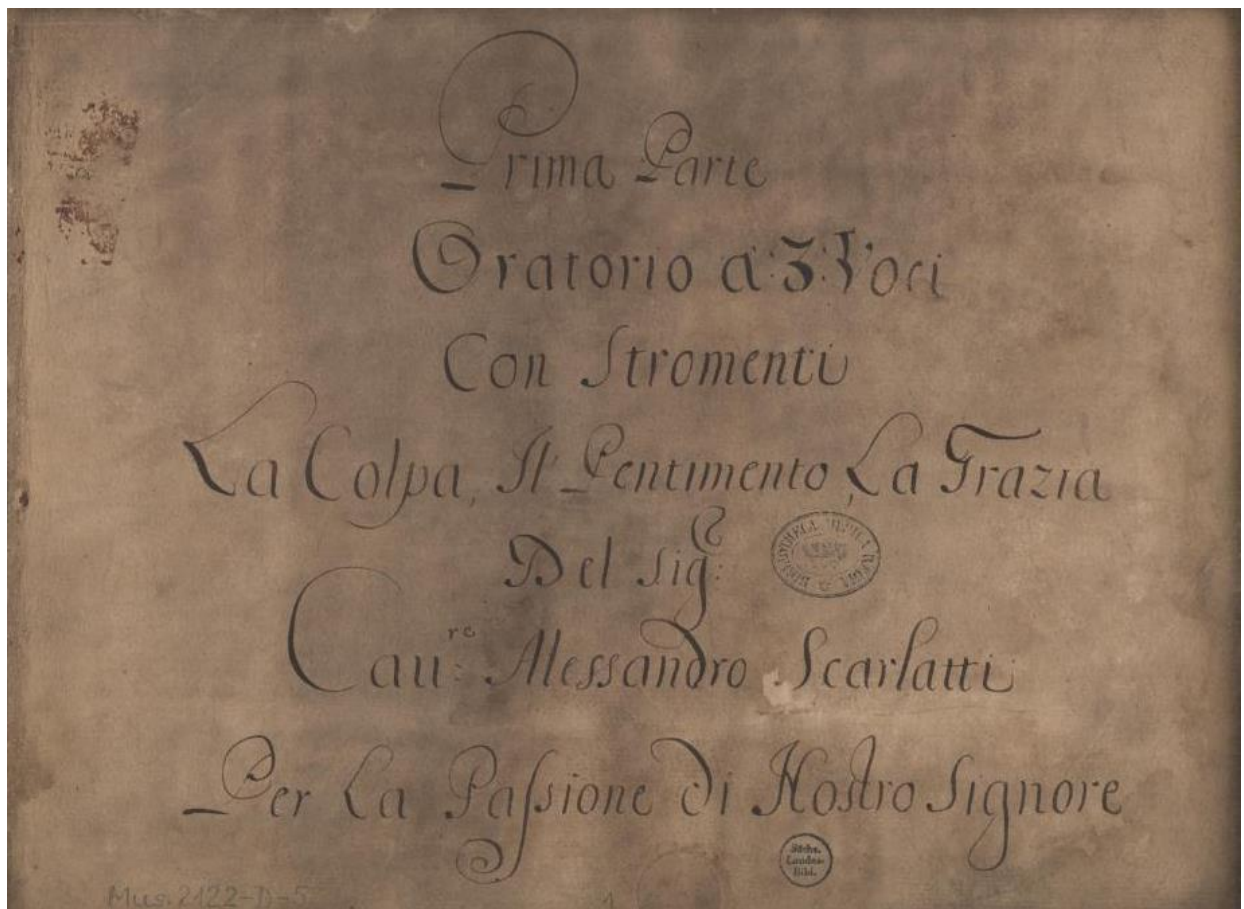 Prima Parte
Oratorio a':3:Voci
Con Stromenti
La Colpa, Il Pentimento, La Grazia
Del Sig:
Cau:re Alessandro Scarlatti
Per La Paſsione di Nostro Signore
Sächs.
Landes-
Bibl.
Mus. 2122-D-5
1